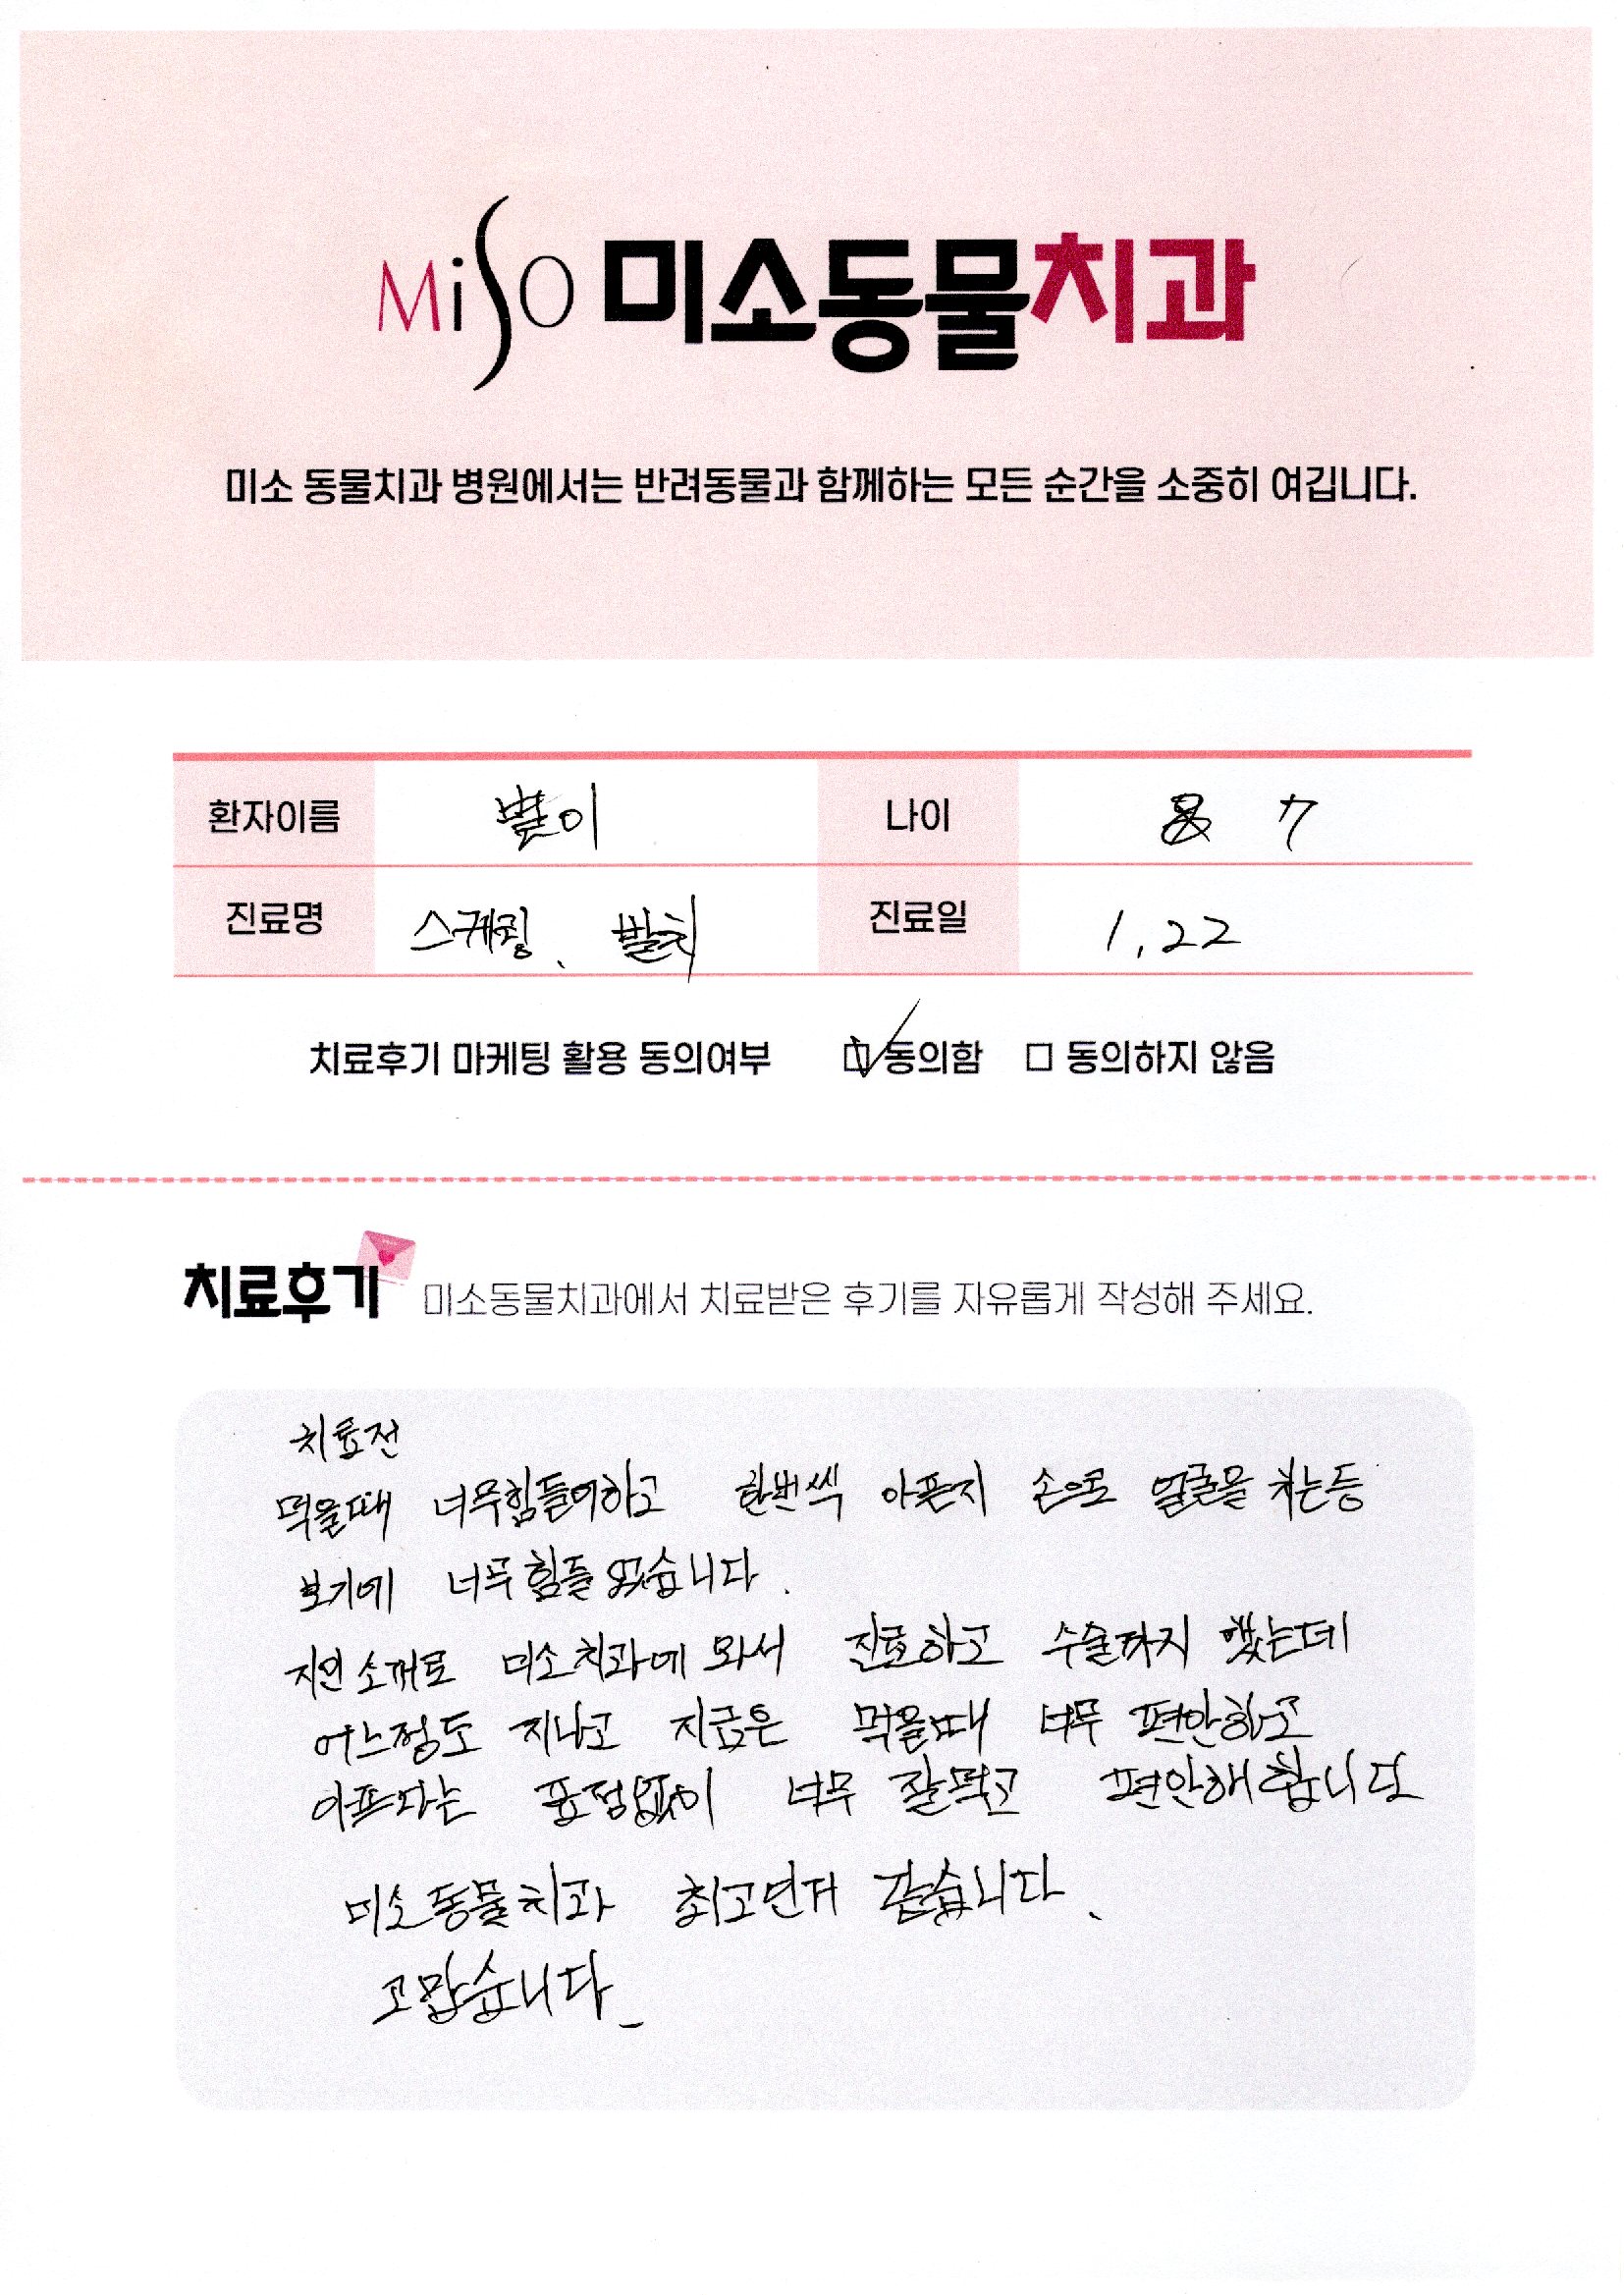 MiSO 미소동물치과
미소 동물치과 병원에서는 반려동물과 함께하는 모든 순간을 소중히 여깁니다.
환자이름 별이 나이 7
진료명 스케링, 발치 진료일 1.22
치료후기 마케팅 활용 동의여부 ☑ 동의함 ☐ 동의하지 않음
치료후기 미소동물치과에서 치료받은 후기를 자유롭게 작성해 주세요.
치료전
먹을때 너무힘들어하고 한번씩 아픈지 손으로 얼굴을 치는등
보기에 너무 힘들었습니다.
지인 소개로 미소치과에 와서 진료하고 수술까지 했는데
어느정도 지나고 지금은 먹을때 너무 편안하고
아프다는 표정없이 너무 잘먹고 편안해 합니다
미소동물치과 최고인거 같습니다.
고맙습니다